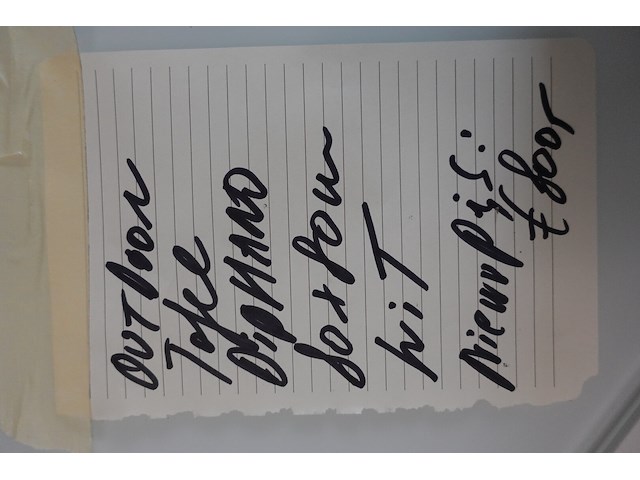 OUTDOOR
Tafel
DipHANO
80x80cm
WiT
Nieuwpijs:
£ 800,-